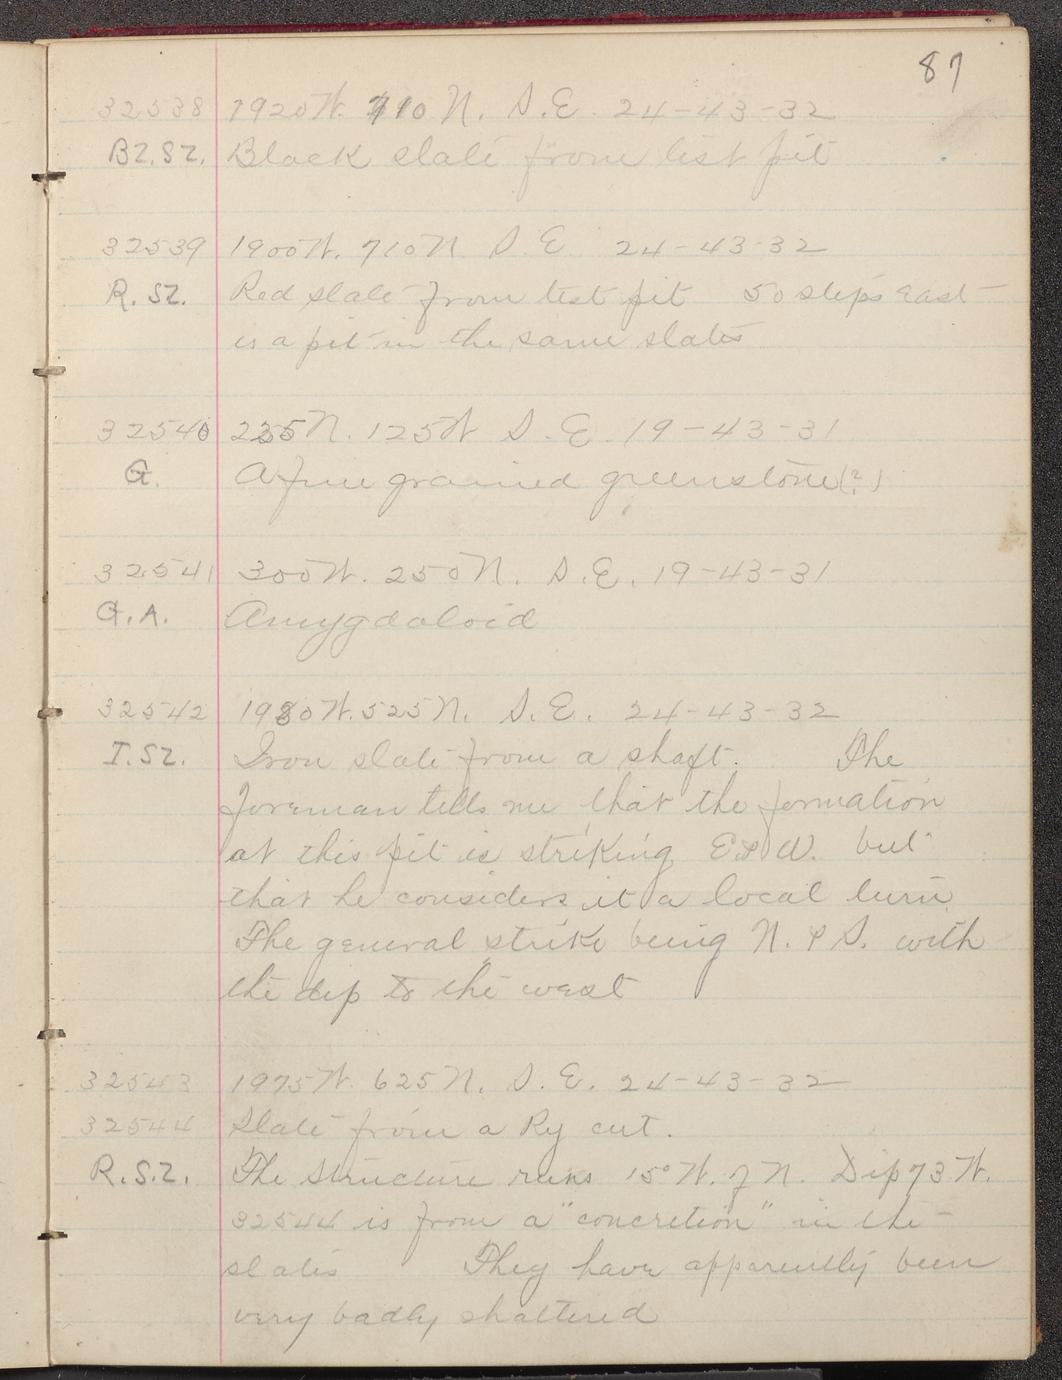 87
32538 1920W. 710 N. S.E. 24-43-32
Bl. Sl. Black slate from test pit
32539 1900W. 710N S.E. 24-43-32
R. Sl. Red slate from test pit 50 steps east
is a pit in the same slates
32540 235N. 125W S.E. 19-43-31
G. A fine grained greenstone(?)
32541 300W. 250N. S.E. 19-43-31
G.A. Amygdaloid
32542 1980W. 525N. S.E. 24-43-32
I. Sl. Iron slate from a shaft. The
foreman tells me that the formation
at this pit is striking E & W. but
that he considers it a local turn.
The general strike being N. & S. with
the dip to the west
32543 1975W. 625N. S.E. 24-43-32
32544 Slate from a Ry cut.
R. Sl. The structure runs 15° W. of N. Dip 73 W.
32544 is from a "concretion" in the
slates They have apparently been
very badly shattered